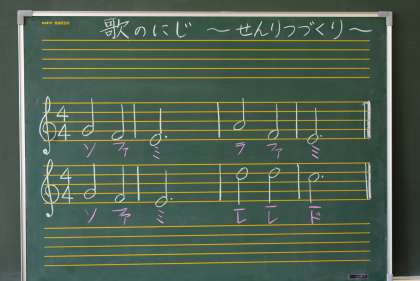 歌のにじ ～せんりつづくり～
4 4
ソ ファ ミ ラ ファ ミ
4 4
ソ ファ ミ レ レ ド